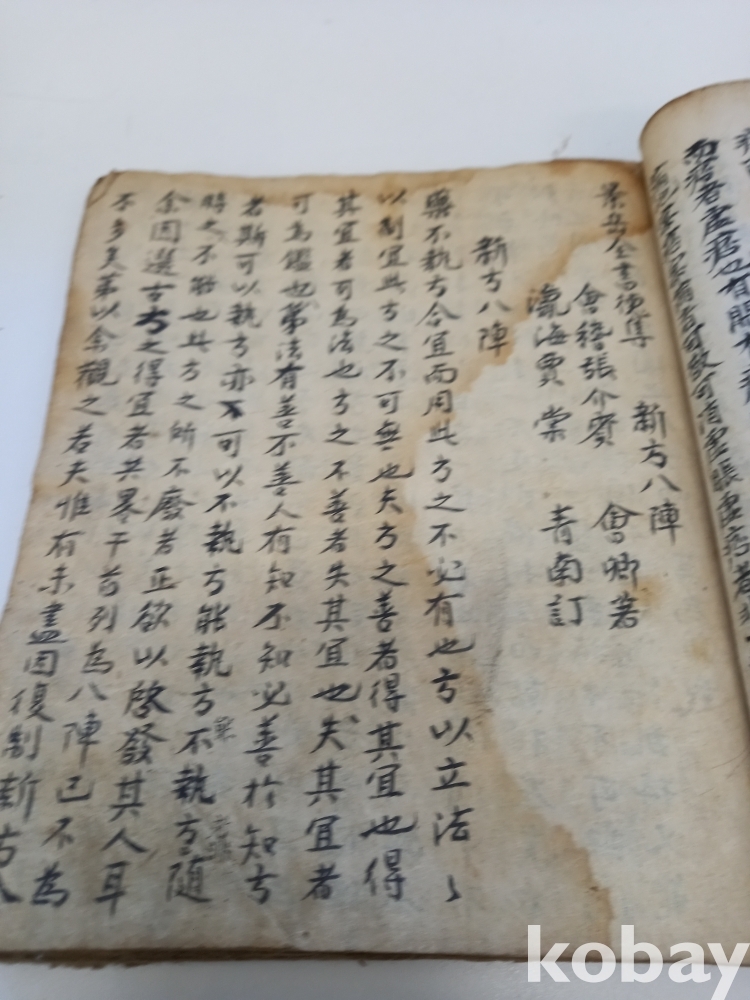 而痞者虛痞也有開
景岳全書德集 新方八陣
會稽張介賓 會卿著
瀛海賈棠 青南訂
新方八陣
藥不執方合宜而用此方之不必有也方以立法〻
以制宜此方之不可無也夫方之善者得其宜也得
其宜者可為法也方之不善者失其宜也失其宜者
可為鑑也第法有善不善人有知不知必善於知方
者斯可以執方亦不可以不執方能執方不執方隨
時之不能也此方之所不廢者正欲以啓發其人耳
余因選古方之得宜者共畧干首列為八陣已不為
不多矣第以余觀之若夫惟有未盡因復制新方八
kobay